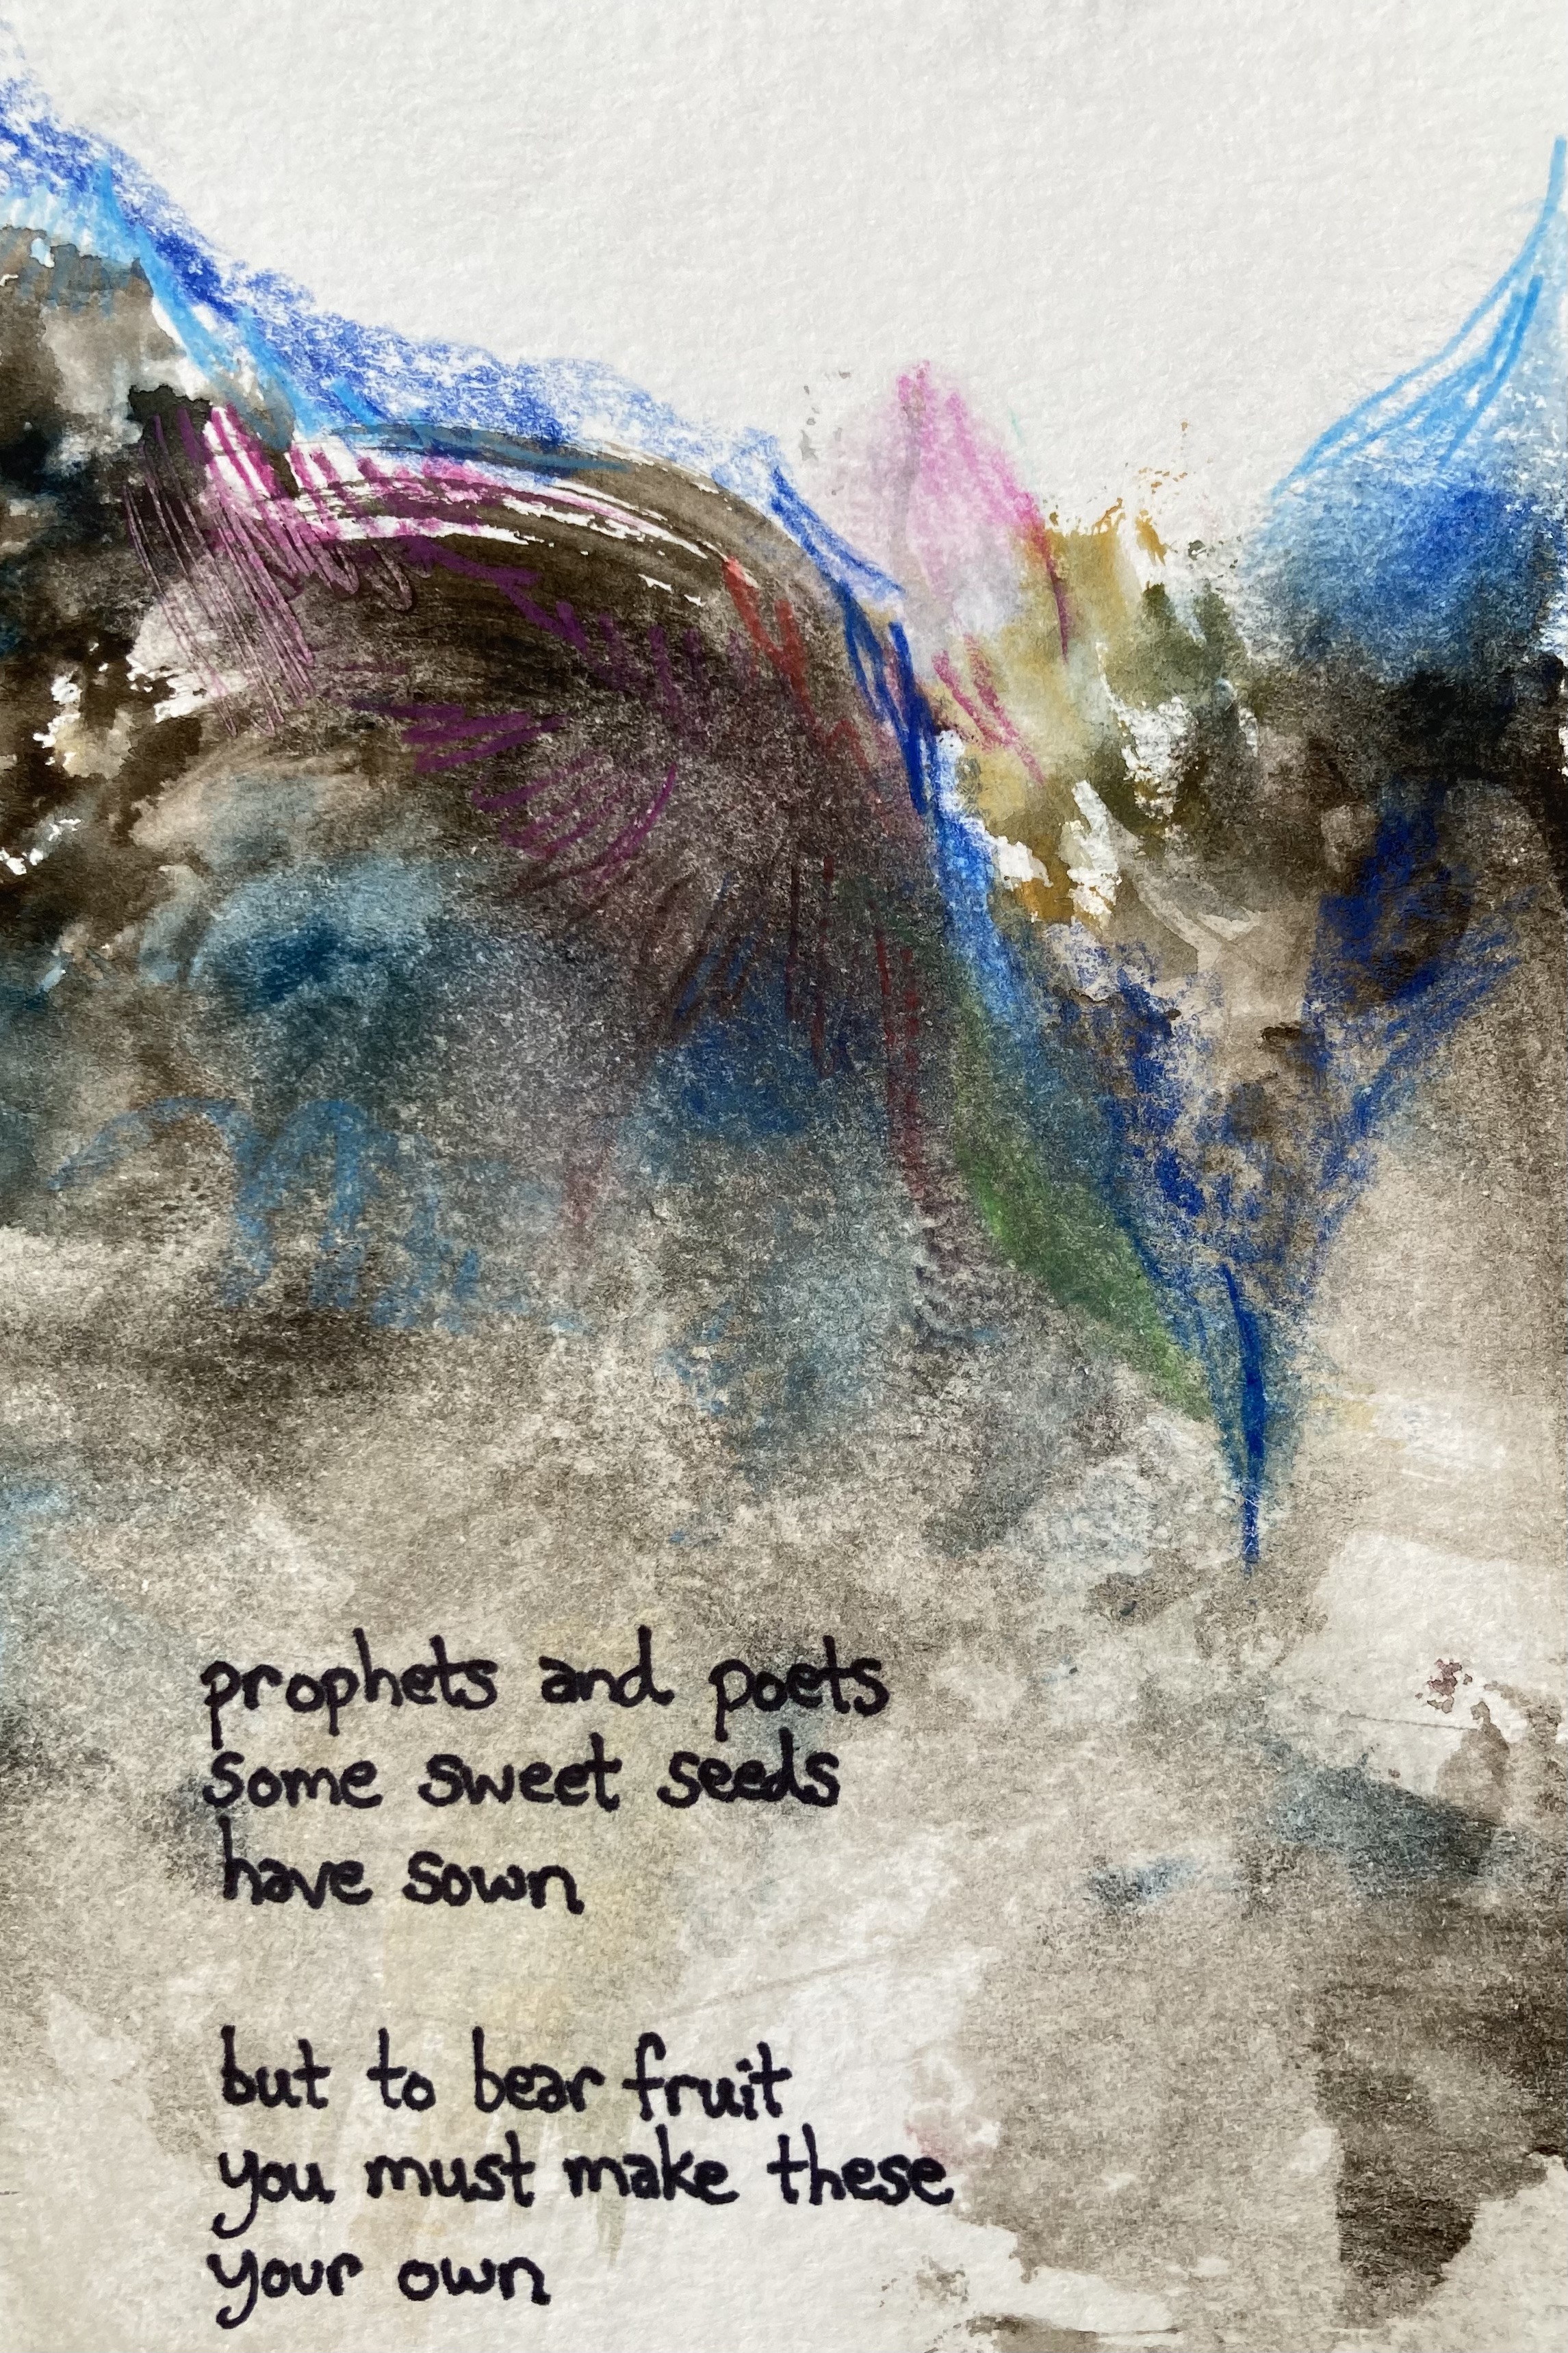 prophets and poets
some sweet seeds
have sown
but to bear fruit
you must make these
your own